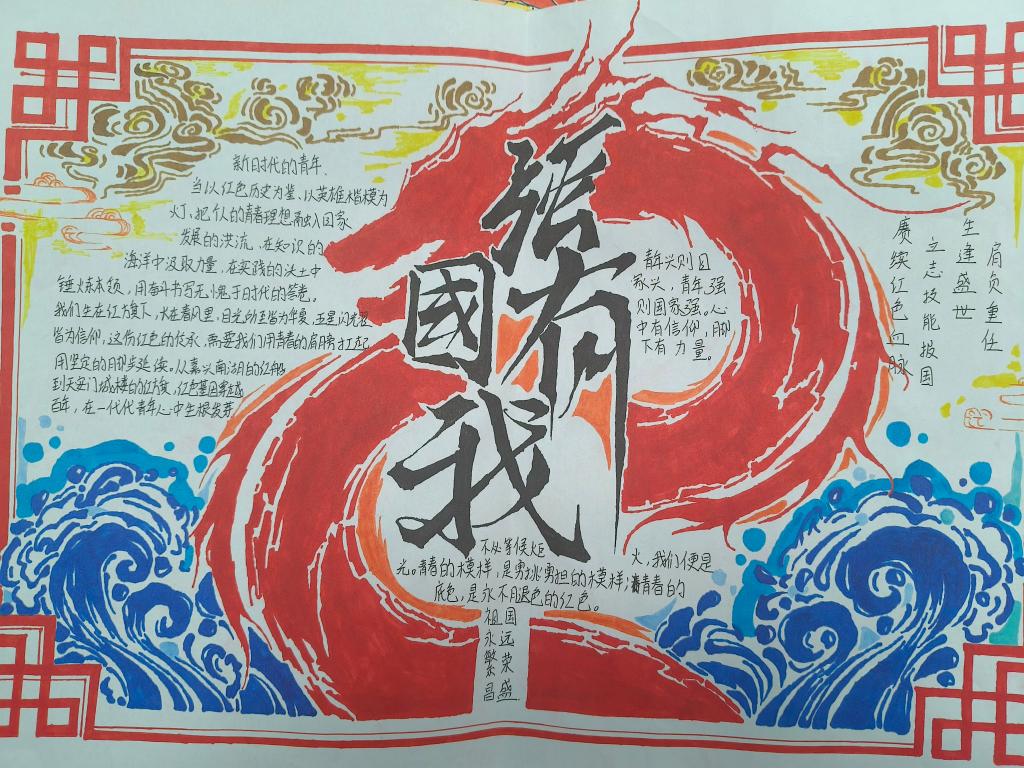 强
國
有
我
新时代的青年、
当以红色历史为鉴、以英雄楷模为
灯、把个人的青春理想融入国家
发展的洪流、在知识的
海洋中汲取力量，在实践的沃土中
锤炼本领，用奋斗书写无愧于时代的答卷。
我们生在红旗下，长在春风里，目光所至皆为华夏，五星闪耀
皆为信仰，这份红色的传承，需要我们用青春的肩膀扛起
用坚定的脚步延续。从嘉兴南湖的红船
到天安门城楼的红旗，红色基因穿越
百年，在一代代青年心中生根发芽
青年兴则国
家兴，青年强
则国家强。心
中有信仰，脚
下有力量。
肩负重任
生逢盛世
立志技能报国
赓续红色血脉
不必等候炬火，我们便是
光。青春的模样，是勇挑勇担的模样；青春的
底色，是永不退色的红色。
祖国
永远
繁荣
昌盛